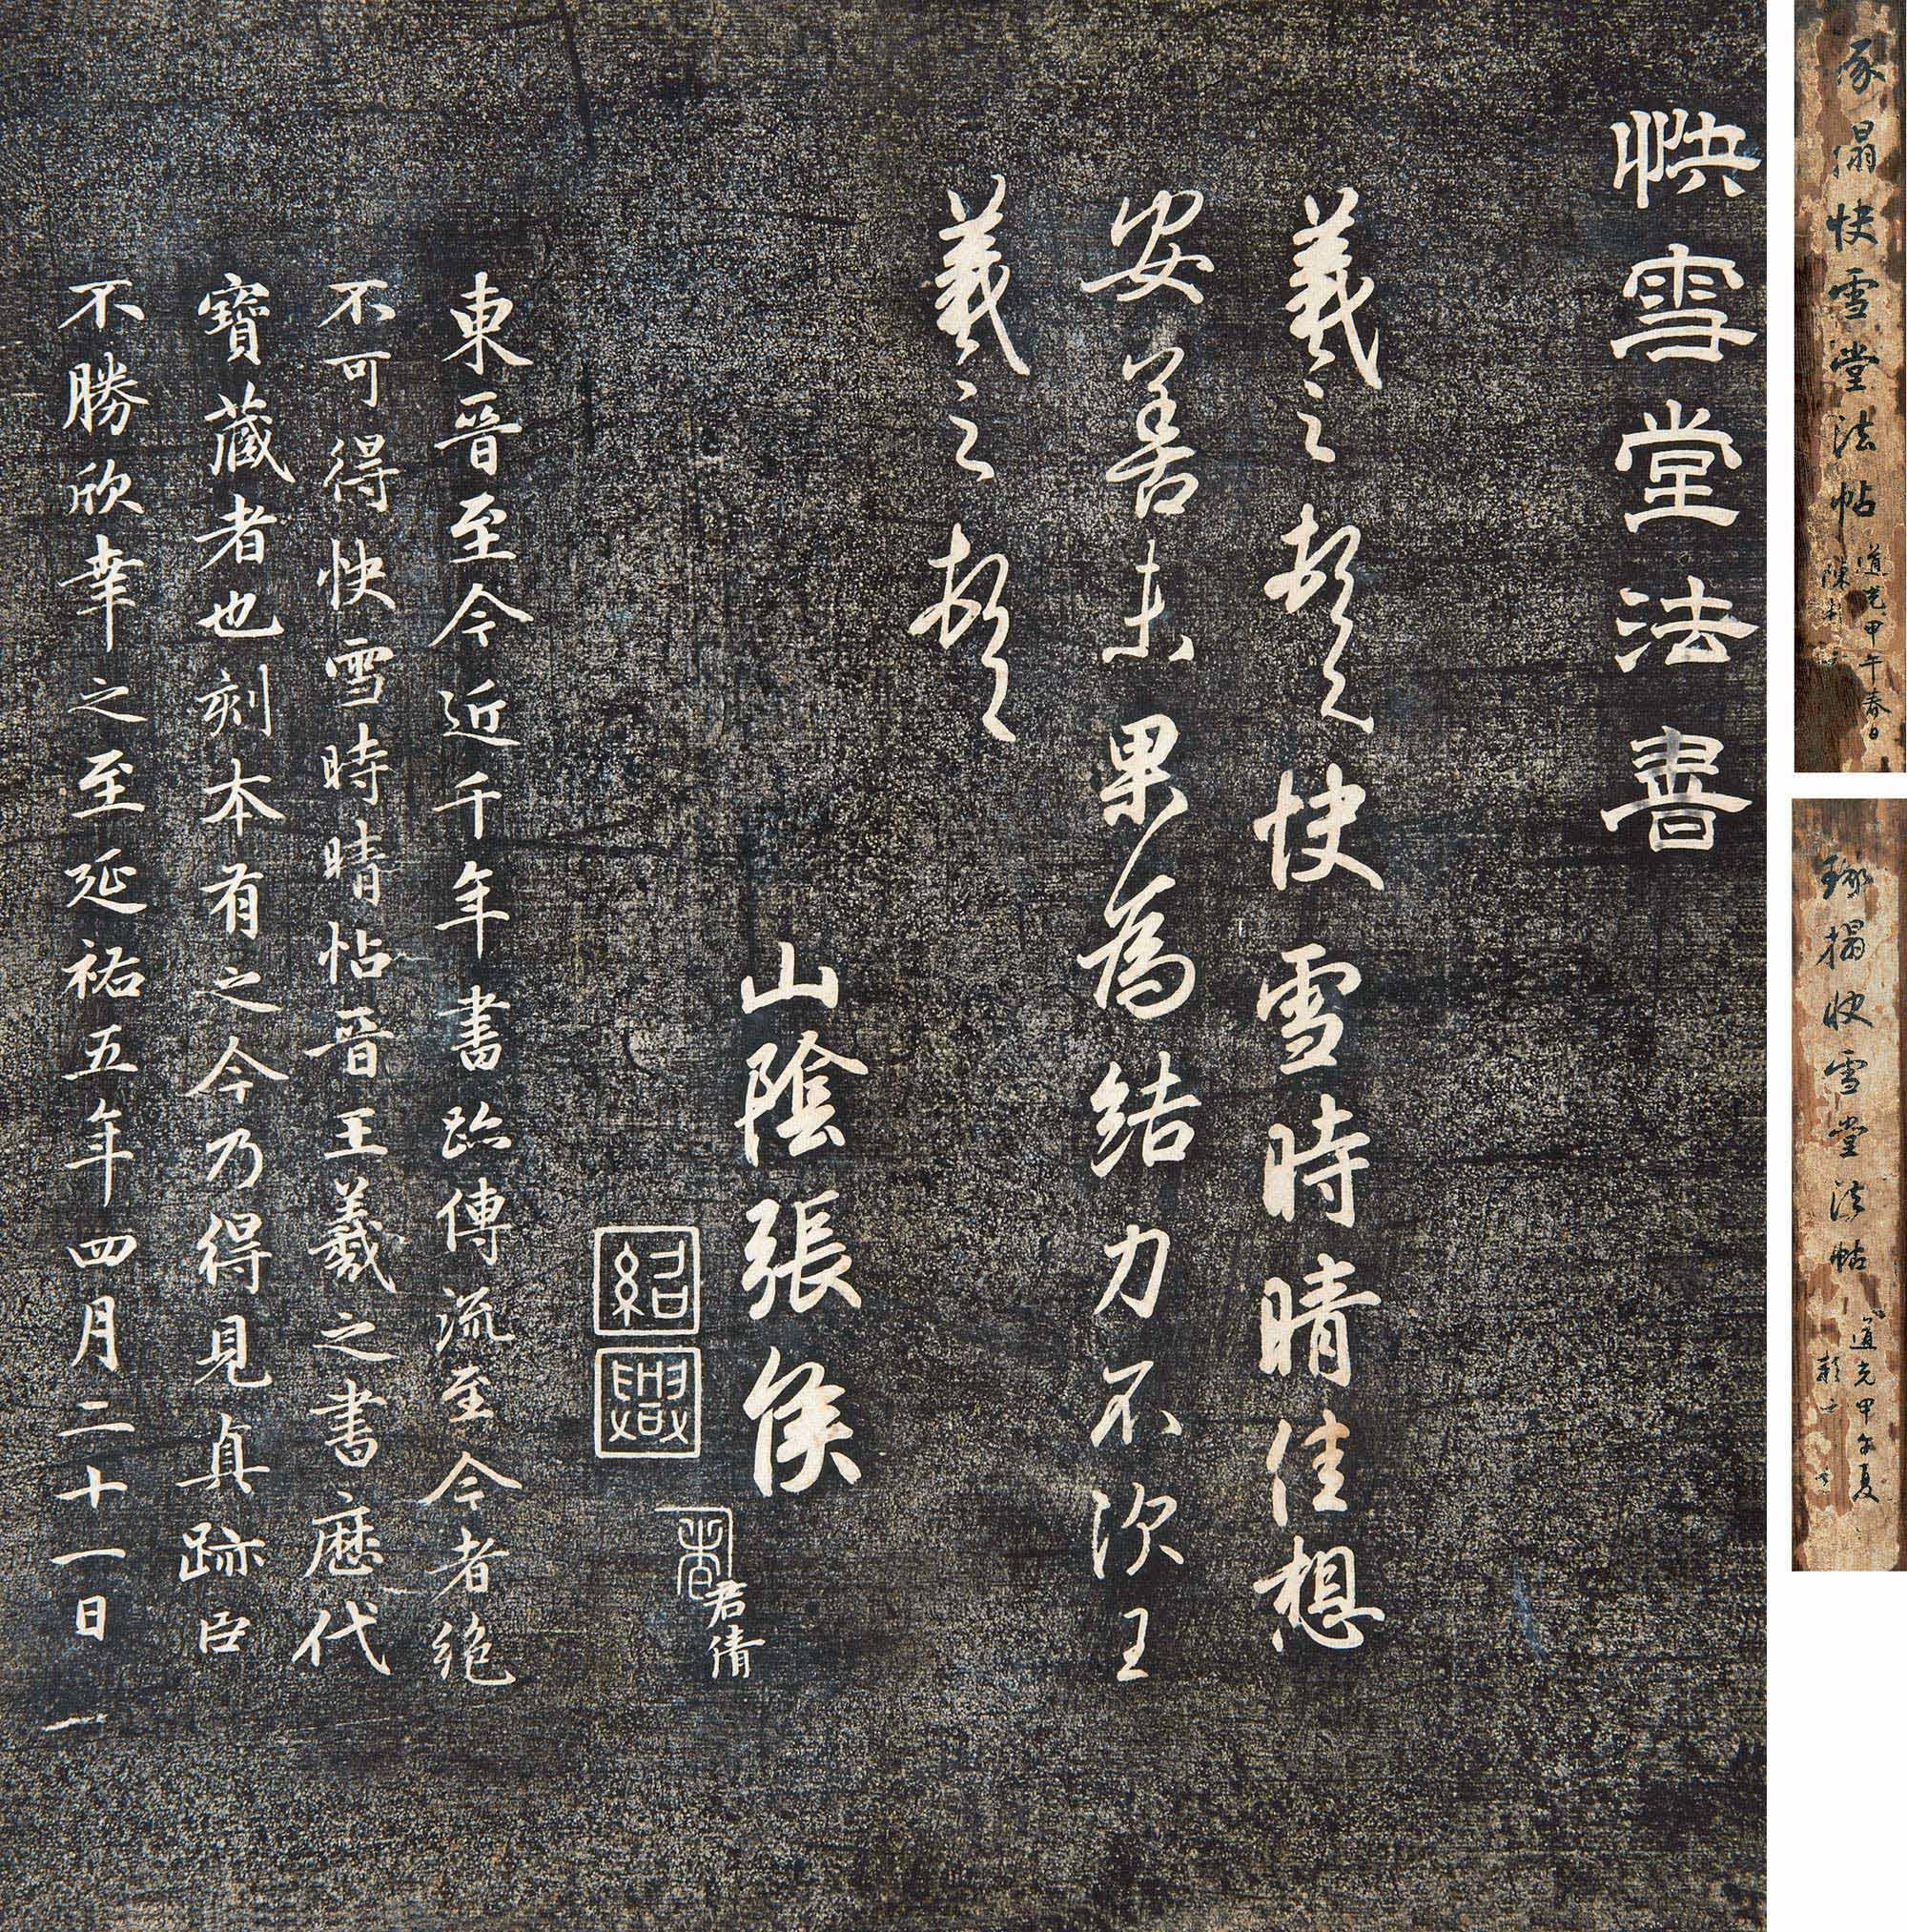 快雪堂法書
羲之頓首快雪時晴佳想
安善未果為結力不次王
羲之頓首
山陰張侯
紹興
君倩
東晉至今近千年書跡傳流至今者絶
不可得快雪時晴帖晉王羲之書歷代
寶藏者也刻本有之今乃得見真跡臣
不勝欣幸之至延祐五年四月二十一日
搨快雪堂法帖
道光甲午春日
搨快雪堂法帖
道光甲午夏